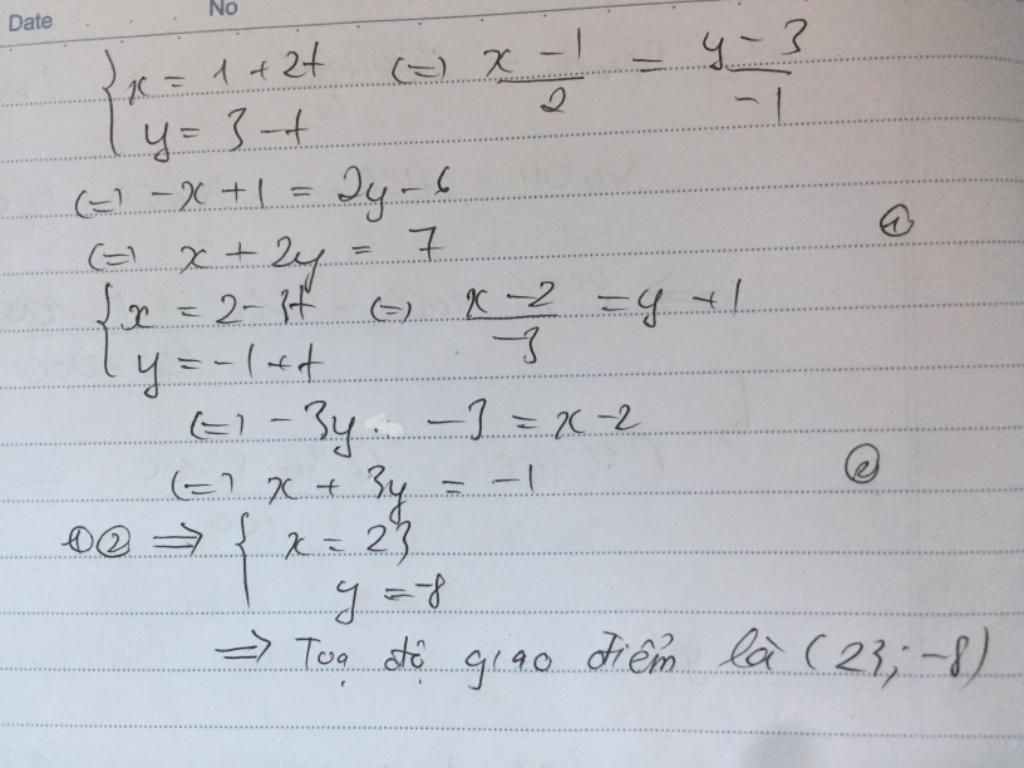 Date No
{ x = 1 + 2t (=) (x - 1)/2 = (y - 3)/-1
y = 3 - t
(=) -x + 1 = 2y - 6
(=) x + 2y = 7 ①
{ x = 2 - 3t (=) (x - 2)/-3 = y + 1
y = -1 + t
(=) -3y - 3 = x - 2
(=) x + 3y = -1 ②
①② ⇒ { x = 23
y = -8
⇒ Toạ độ giao điểm là (23; -8)